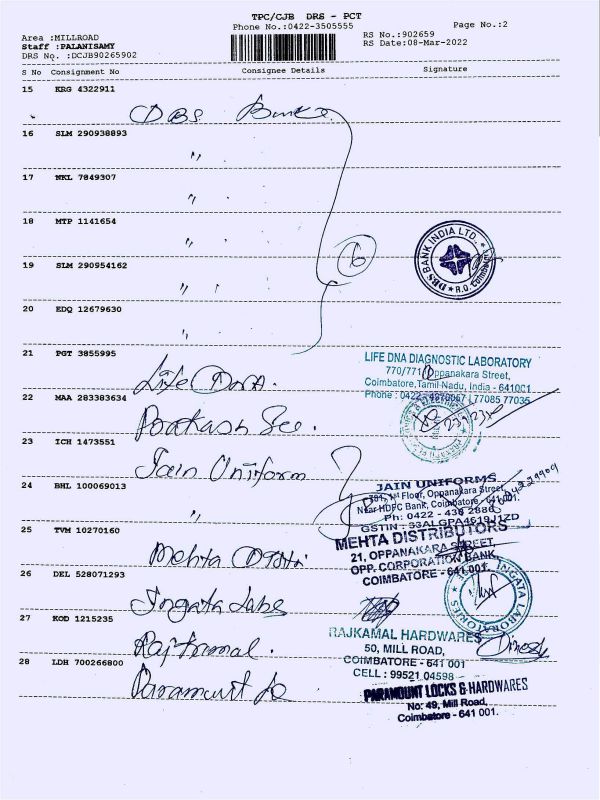 TPC/CJB DRS - PCT
Phone No.:0422-3505555
Page No.:2
Area :MILLROAD
Staff :PALANISAMY
DRS No. :DCJB90265902
RS No.:902659
RS Date:08-Mar-2022
S No Consignment No Consignee Details Signature
15 KRG 4322911
DBS Bank
16 SLM 290938893
"
17 NKL 7849307
"
18 MTP 1141654
"
6
DBS BANK INDIA LTD.
R.O. COIMBATORE
19 SLM 290954162
"
20 EDQ 12679630
"
21 PGT 3855995
Life DNA.
LIFE DNA DIAGNOSTIC LABORATORY
770/771, Oppanakara Street,
Coimbatore,Tamil Nadu, India - 641001
Phone : 0422 - 4970067 | 77085 77035
22 MAA 283383634
Prakash See.
23 ICH 1473551
Jain Uniform
24 BHL 100069013
"
JAIN UNIFORMS
1st Floor, Oppanakara Street,
Near HDFC Bank, Coimbatore - 641 001.
Ph: 0422 - 438 2886
25 TVM 10270160
Mehta Distri
MEHTA DISTRIBUTORS
21, OPPANAKARA STREET,
OPP. CORPORATION BANK,
COIMBATORE - 641 001.
26 DEL 528071293
Ingata Labs
INGATA LABORATORIES
27 KOD 1215235
Rajkamal.
RAJKAMAL HARDWARES
50, MILL ROAD,
COIMBATORE - 641 001
CELL : 99521 04598
Dinesh
28 LDH 700266800
Paramount Lo
PARAMOUNT LOCKS & HARDWARES
No: 49, Mill Road,
Coimbatore - 641 001.